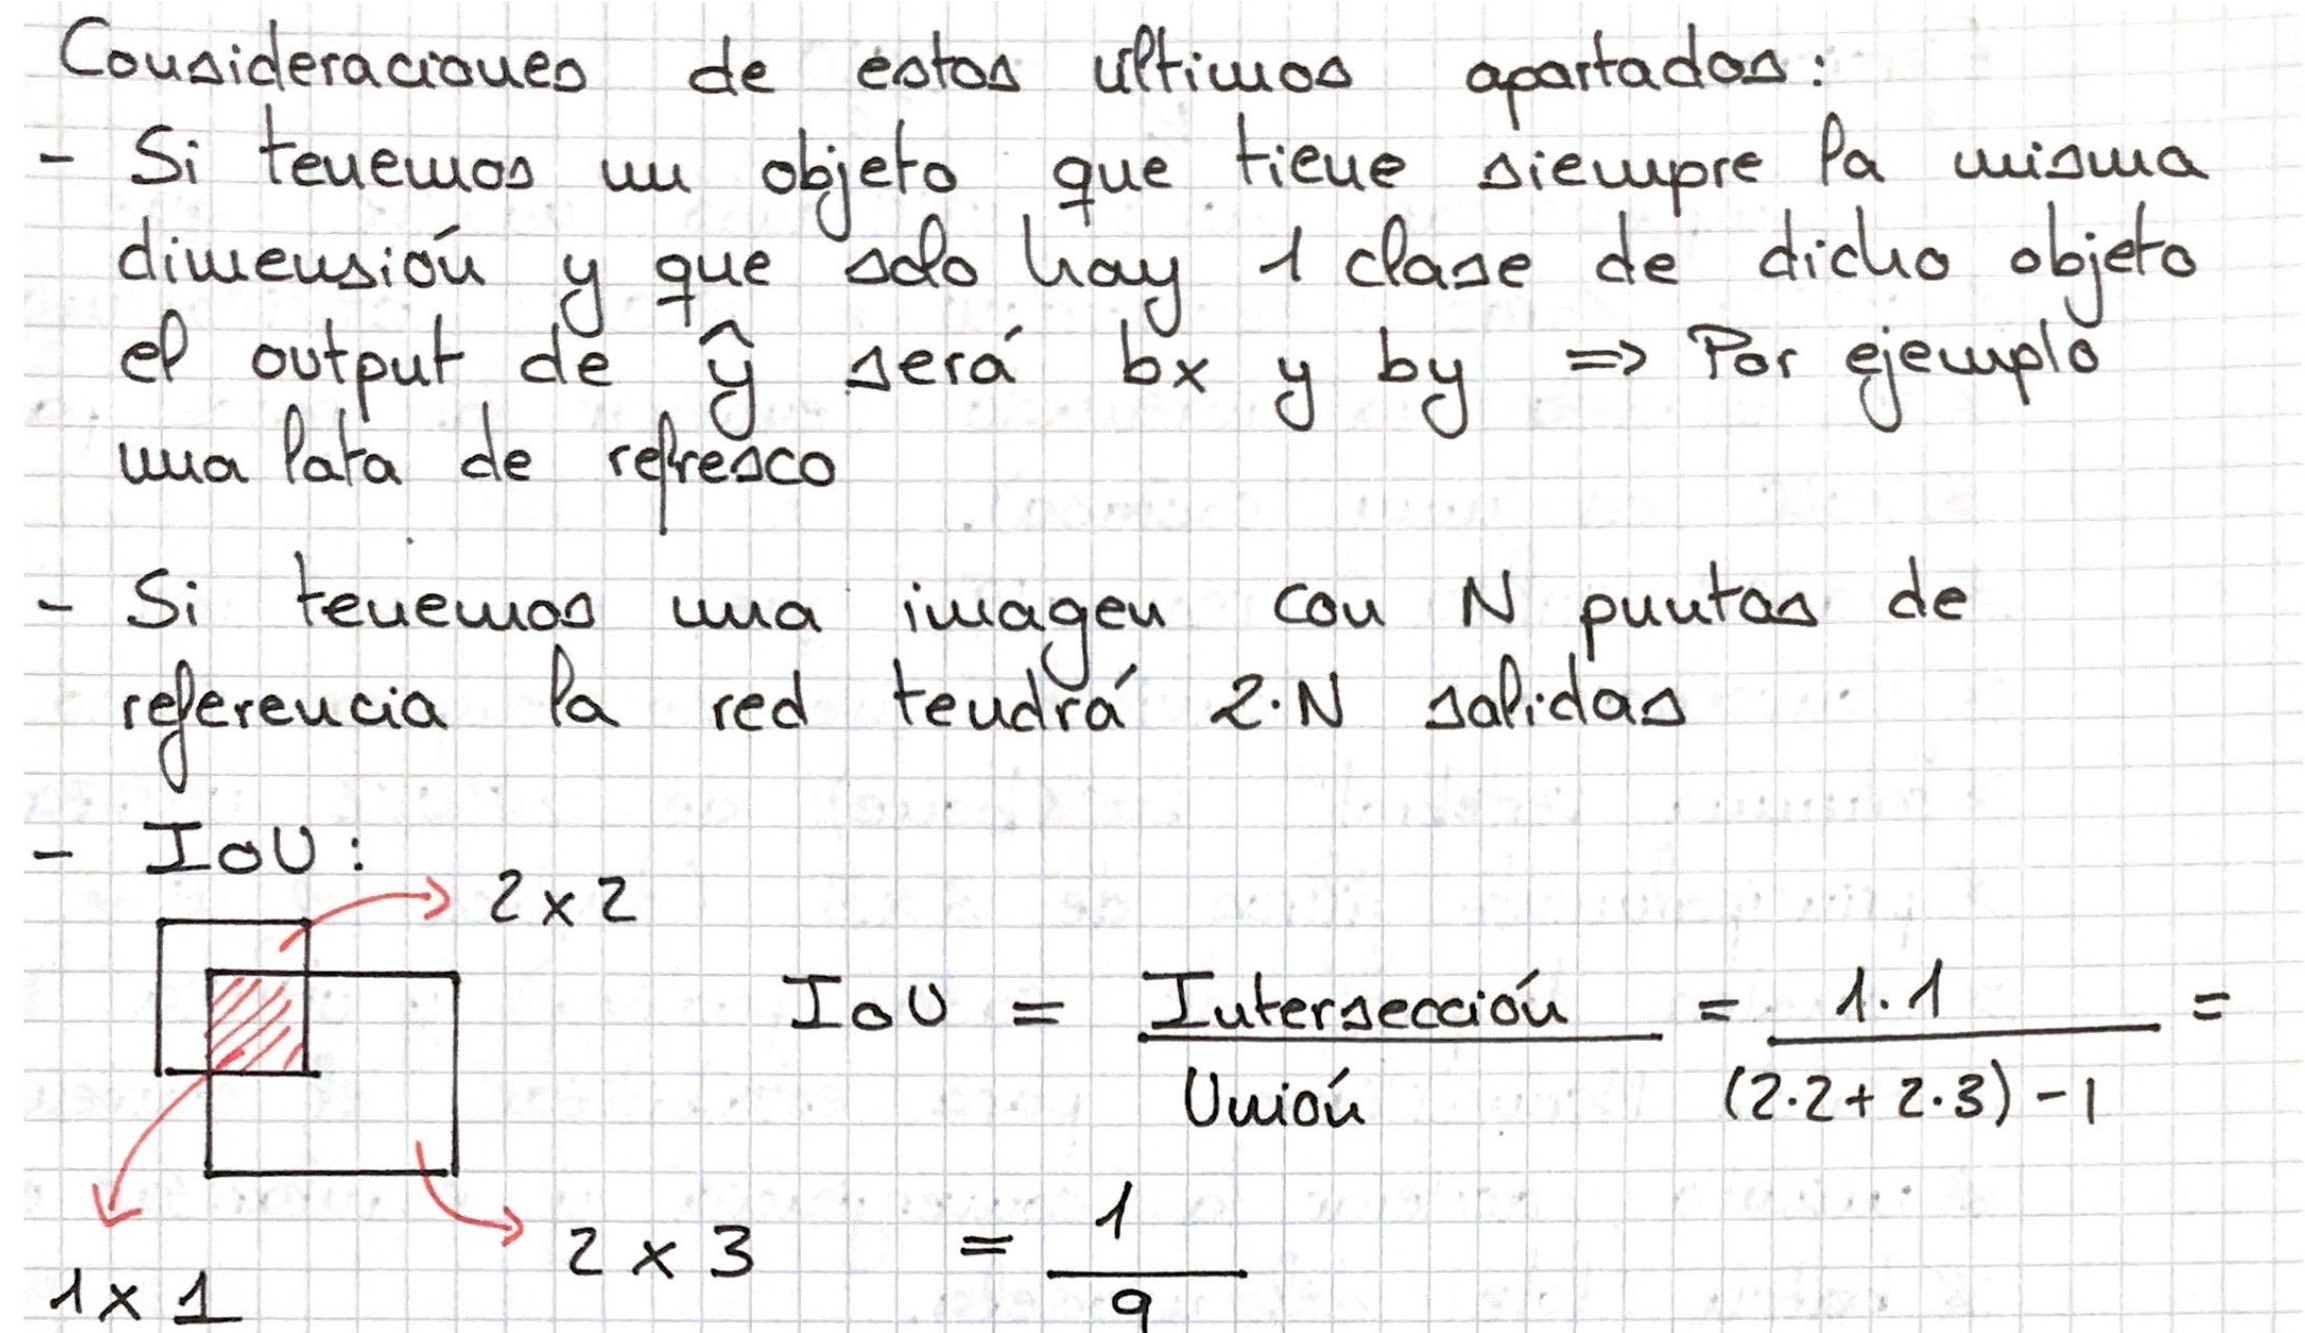 Consideraciones de estos ultimos apartados:
- Si tenemos un objeto que tiene siempre la misma
dimensión y que solo hay 1 clase de dicho objeto
el output de ŷ será bx y by => Por ejemplo
una lata de refresco
- Si tenemos una imagen con N puntos de
referencia la red tendrá 2·N salidas
- IoU:
2 x 2
IoU = Intersección / Unión = 1·1 / (2·2 + 2·3) - 1 =
2 x 3
= 1 / 9
1 x 1